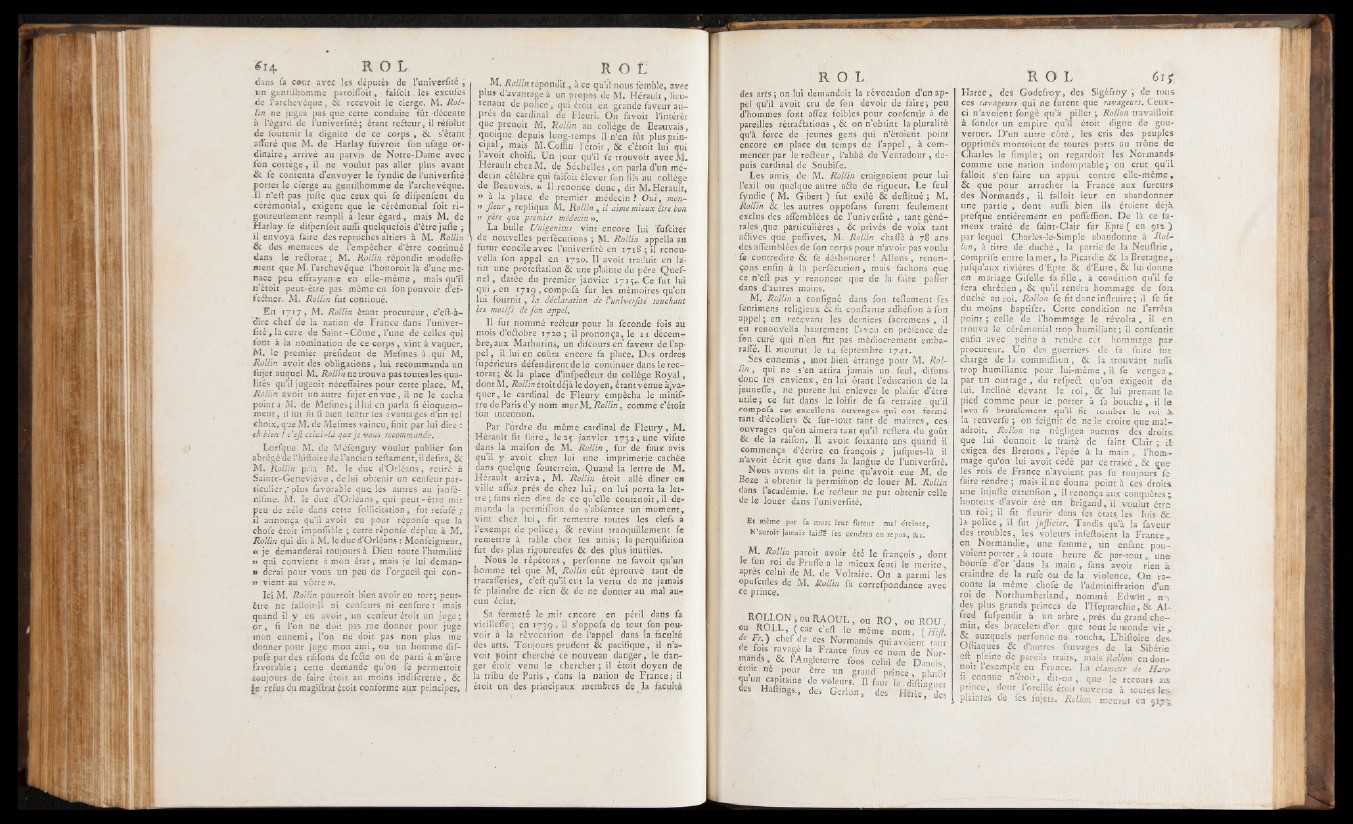 614 R O L
dans fa cour avec les députés de l'univerfité ;
un gentilhomme paroiffoit, faifoit les excufes
de l'archevêque, & recevoit le cierge. M. Rol-
lin ne jugea pas que cette conduite fût décente
à l'égard de l'univerfité ; étant recteur, il réfolut
de foutenir la dignité de ce corps, & s'étant
affuré que M. de Harlay fuivroit fon ufage or-
dinaire, arrivé au parvis de Notre-Dame avec
fon cortège, il ne voulut pas aller plus avant
& fe contenta d'envoyer le fyndic de l'univerfité
porter le cierge au gentilhomme de l'archevêque.
Il n'eft pas jufte que ceux qui fe difpenfent du
cérémonial, exigent que le cérémonial foit ri-
goureufement rempli à leur égard, mais M. de
Harlay fe difpenfoit auffi quelquefois d'être jufte ;
il envoya faire des reproches altiers à M. Rollin
& des menaces de l'empêcher d'être continué
dans le rectorat ; M. Rollin répondit modefte-
ment que M. l'archevêque l'honoroit là d'une me-
nace peu effrayante en elle-même, mais qu'il
n'étoit peut-être pas même en fon pouvoir d'ef-
fectuer. M. Rollin fut continué.
En 1717, M. Rollin étant procureur, c'eft-à-
dire chef de la nation de France dans l'univer-
fité, la cure de Saint-Côme, l'une de celles qui
font à la nomination de ce corps, vint à vaquer.
M. le premier préfident de Mefmes à qui M.
Rollin avoit des obligations, lui recommanda un
fujet auquel M. Rollin ne trouva pas toutes les qua-
lités qu'il jugeoit néceffaires pour cette place. M.
Rollin avoit un autre fujet en vue, il ne le cacha
point à M. de Mefmes ; il lui en parla fi éloquem-
ment, il lui fit fi bien fentir les avantages d'un tel
choix, que M. de Mefmes vaincu, finit par lui dire :
eh bien ! c'eft celui-là que je vous recommande.
Lorfque M. de Méfenguy voulut publier fon
abrégé de l'hiftoire de l'ancien teftament, il defira, &
M. Rollin pria M. le duc d'Orléans, retiré à
Sainte-Geneviève, de lui obtenir un cenfeur par-
ticulier, plus favorable que les autres au janfé-
nifme. M. le duc d'Orléans, qui peut-être mit
peu de zèle dans cette follicitation, fut refufé ;
il annonça qu'il avoit eu pour réponfe que la
chofe étoit impoffible ; cette réponfe déplut à M.
Rollin qui dit à M. le duc d'Orléans : Monfeigneur,
« je demanderai toujours à Dieu toute l'humilité
» qui convient à mon état, mais je lui deman-
» derai pour vous un peu de l'orgueil qui con-
» vient au vôtre ».
Ici M. Rollin pourroit bien avoir eu tort ; peut-
être ne falloit-il ni cenfeurs ni cenfure : mais
quand il y en avoit, un cenfeur étoit un juge ;
or, fi l'on ne doit pas me donner pour juge
mon ennemi, l'on ne doit pas non plus me
donner pour juge mon ami, ou un homme dif-
pofé par des raifons de fecte ou de parti à m'être
favorable ; cette demande qu'on fe permettoit
toujours de faire étoit au moins indifcrette, &
le refus du magiftrat étoit conforme aux principes.
R O L
M. Rollin répondit, à ce qu'il nous femble, avec
plus d'avantage à un propos de M. Hérault, lieu-
tenant de police, qui étoit en grande faveur au-
près du cardinal de Fleuri. On favoit l'intérêt
que prenoit M. Rollin au collège de Beauvais,
quoique depuis long-temps il n'en fût plus prin-
cipal, mais M. Coffin l'étoit, & c'étoit lui qui
l'avoit choifi. Un jour qu'il fe trouvoit avec M.
Hérault chez M. de Séchelles, on parla d'un mé-
decin célèbre qui faifoit élever fon fils au collège
de Beauvais. « Il renonce donc, dit M. Hérault,
» à la place de premier médecin ? Oui, mon-
» fieur, repliqua M. Rollin, il aime mieux être bon
» père que premier médecin ».
La bulle Unigenitus vint encore lui fufciter
de nouvelles perfécutions ; M. Rollin appella au
futur concile avec l'univerfité en 1718 ; il renou-
vella fon appel en 1720. Il avoit traduit en la-
tin une proteftation & une plainte du père Quef-
nel, datée du premier janvier 1715. Ce fut lui
qui, en 1719, compofa fur les mémoires qu'on
lui fournit, la déclaration de l'univerfité touchant
les motifs de fon appel.
Il fut nommé recteur pour la feconde fois au
mois d'octobre 1720 ; il prononça, le 11 décem-
bre, aux Mathurins, un difcours en faveur de l'ap-
pel, il lui en coûta encore fa place. Des ordres
fupérieurs défendirent de le continuer dans le rec-
torat ; & la place d'infpecteur du collège Royal,
dont M. Rollin étoit déjà le doyen, étant venue à va-
quer, le cardinal de Fleury empêcha le minif-
tre de Paris d'y nommer M. Rollin, comme c'étoit
fon intention.
Par l'ordre du même cardinal de Fleury, M.
Hérault fit faire, le 25 janvier 1732, une vifite
dans la maifon de M. Rollin, fur de faux avis
qu'il y avoit chez lui une imprimerie cachée
dans quelque fouterrein. Quand la lettre de M.
Hérault arriva, M. Rollin étoit allé dîner en
ville affez près de chez lui ; on lui porta la let-
tre ; fans rien dire de ce qu'elle contenoit, il de-
manda la permiffion de s'abfenter un moment,
vint chez lui, fit remettre toutes les clefs à
l'exempt de police ; & revint tranquillement fe
remettre à table chez fes amis ; la perquifition
fut des plus rigoureufes & des plus inutiles.
Nous le répétons, perfonne ne favoit qu'un
homme tel que M. Rollin eût éprouvé tant de
tracafferies, c'eft qu'il eut la vertu de ne jamais
fe plaindre de rien & de ne donner au mal au-
cun éclat.
Sa fermeté le mit encore en péril dans fa
vieilleffe ; en 1739, il s'oppofa de tout fon pou-
voir à la révocation de l'appel dans la faculté
des arts. Toujours prudent & pacifique, il n'a-
voit point cherché ce nouveau danger, le dan-
ger étoit venu le chercher ; il étoit doyen de
la tribu de Paris, dans la nation de France ; il
étoit un des principaux membres de la faculté
R O L
des arts ; on lui demandoit la révocation d'un ap-
pel qu'il avoit cru de fon devoir de faire ; peu
d'hommes font affez foibles pour confentir à de
pareilles rétractations, & on n'obtint la pluralité
qu'à force de jeunes gens qui n'étoient point
encore en place du temps de l'appel, à com-
mencer par le recteur, l'abbé de Ventadour, de-
puis cardinal de Soubife.
Les amis de M. Rollin craignoient pour lui
l'exil ou quelque autre acte de rigueur. Le feul
fyndic ( M. Gibert ) fut exilé & deftitué ; M.
Rollin & les autres oppofans furent feulement
exclus des affemblées de l'univerfité, tant géné-
rales que particulières, & privés de voix tant
actives que paffives. M. Rollin chaffé à 78 ans
des affemblées de fon corps pour n'avoir pas voulu
fe contredire & fe déshonorer ! Allons, renon-
çons enfin à la perfécution, mais fachons que
ce n'eft pas y renoncer que de la faire paffer
dans d'autres mains.
M. Rollin a configné dans fon teftament fes
fentimens religieux & fa conftante adhéfion à fon
appel ; en recevant les derniers facremens, il
en renouvella hautement l'aveu en préfence de
fon curé qui n'en fut pas médiocrement emba-
raffé. Il mourut le 14 feptembre 1741.
Ses ennemis, mot bien étrange pour M. Rol-
lin, qui ne s'en attira jamais un feul, difons
donc fes envieux, en lui ôtant l'éducation de la
jeuneffe, ne purent lui enlever le plaifir d'être
utile ; ce fut dans le loifir de fa retraite qu'il
compofa ces excellens ouvrages qui ont formé
tant d'écoliers & fur-tout tant de maîtres, ces
ouvrages qu'on aimera tant qu'il reftera du goût
& de la raifon. Il avoit foixante ans quand il
commença d'écrire en françois ; jufques-là il
n'avoit écrit que dans la langue de l'univerfité.
Nous avons dit la peine qu'avoit eue M. de
Boze à obtenir la permiffion de louer M. Rollin
dans l'académie. Le recteur ne put obtenir celle
de le louer dans l'univerfité.
Et même par fa mort leur fureur mal éteinte,
N'auroit jamais laiffé fes cendres en repos, &c.
M. Rollin paroit avoir été le françois, dont
le feu roi de Pruffe a le mieux fenti le mérite,
après celui de M. de Voltaire. On a parmi les
opufcules de M. Rollin fa correfpondance avec
ce prince.
ROLLON, ou RAOUL, ou RO, ou ROU,
ou ROLL, ( car c'eft le même nom, ( Hift.
de Fr. ) chef de ces Normands qui avoient tant
de fois ravagé la France fous ce nom de Nor-
mands, & l'Angleterre fous celui de Danois,
étoit né pour être un grand prince, plutôt
qu'un capitaine de voleurs. Il faut le diftinguer
des Haftings, des Gerlon, des Héric, des
R O L 615
Harec, des Godefroy, des Sigéfroy ; de tous
ces ravageurs qui ne furent que ravageurs. Ceux-
ci n'avoient fongé qu'à piller ; Rollon travailloit
à fonder un empire qu'il étoit digne de gou-
verner. D'un autre côté, les cris des peuples
opprimés montoient de toutes parts au trône de
Charles le fimple ; on regardoit les Normands
comme une nation indomptable ; on crut qu'il
falloit s'en faire un appui contre elle-même,
& que pour arracher la France aux fureurs
des Normands, il falloit leur en abandonner
une partie, dont auffi bien ils étoient déjà
prefque entiérement en poffeffion. De là ce fa-
meux traité de faint-Clair fur Epte ( en 912 )
par lequel Charles-le-Simple abandonne à Rol-
lon, à titre de duché, la partie de la Neuftrie,
comprife entre la mer, la Picardie & la Bretagne,
jufqu'aux rivières d'Epte & d'Eure, & lui donne
en mariage Gifelle fa fille, à condition qu'il fe
fera chrétien, & qu'il rendra hommage de fon
duché au roi. Rollon fe fit donc inftruire ; il fe fit
du moins baptifer. Cette condition ne l'arrêta
point ; celle de l'hommage le révolta, il en
trouva le cérémonial trop humiliant ; il confentit
enfin avec peine à rendre cet hommage par
procureur. Un des guerriers de fa fuite fut
chargé de la commiffion, & la trouvant auffi
trop humiliante pour lui-même, il fe vengea,
par un outrage, du refpect qu'on exigeoit de
lui. Incliné devant le roi, & lui prenant le
pied comme pour le porter à fa bouche, il le
leva fi brufquement qu'il fit tomber le roi à
la renverfe ; on feignit de ne le croire que mal-
adroit. Rollon ne négligea aucuns des droits
que lui donnoit le traité de faint Clair ; il
exigea des Bretons, l'épée à la main, l'hom-
mage qu'on lui avoit cédé par ce traité, & que
les rois de France n'avoient pas fu toujours fe
faire rendre ; mais il ne donna point à ces droits
une injufte extenfion, il renonça aux conquêtes ;
honteux d'avoir été un brigand, il voulut être
un roi ; il fit fleurir dans fes états les loix &
la police, il fut jufticier. Tandis qu'à la faveur
des troubles, les voleurs infeftoient la France,
en Normandie, une femme, un enfant pou-
voient porter, à toute heure & par-tout, une
bourfe d'or dans la main, fans avoir rien à
craindre de la rufe ou de la violence. On ra-
conte la même chofe de l'adminiftration d'un
roi de Northumberland, nommé Edwin, un
des plus grands princes de l'Heptarchie, & Al-
fred fufpendit à un arbre, près du grand che-
min, des bracelets d'or que tout le monde vit,
& auxquels perfonne ne toucha. L'hiftoire des
Oftiaques & d'autres fauvages de la Sibérie
eft pleine de pareils traits, mais Rollon en don-
noit l'exemple en France. La clameur de Haro
fi connue n'étoit, dit-on, que le recours au
prince, dont l'oreille étoit ouverte à toutes les
plaintes de fes fujets. Rollon mourut en 917,